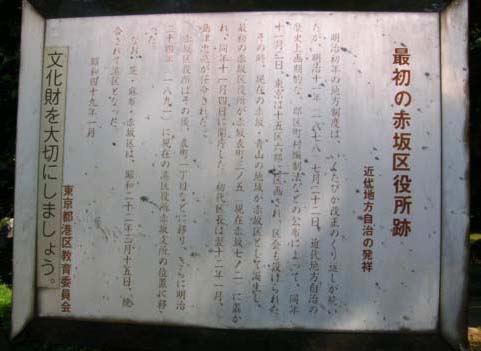 最初の赤坂区役所跡
近代地方自治の発祥
明治初年の地方制度は、いくたびか改正のくり返しが続い
たが、明治十一年(一八七八)七月二十二日、近代地方自治の
歴史上画期的な、郡区町村編制法などの公布によって、同年
十一月二日、東京は十五区六郡に区画され、区会も設けられた。
その時、現在の赤坂・青山の地域が赤坂区として誕生し、
最初の赤坂区役所が赤坂表町三ノ五(現在赤坂七ノ一)に置か
れ、同年十一月四日に開庁した。初代区長は翌十二年一月、
島津忠亮が任命された。
赤坂区役所はその後、表町二丁目などに移り、さらに明治
二十四年(一八九一)に現在の港区役所赤坂支所の位置に移
った。
なお、芝・麻布・赤坂区は、昭和二十二年三月十五日、統
合されて港区となった。
昭和四十九年一月
東京都港区教育委員会
文化財を大切にしましょう。